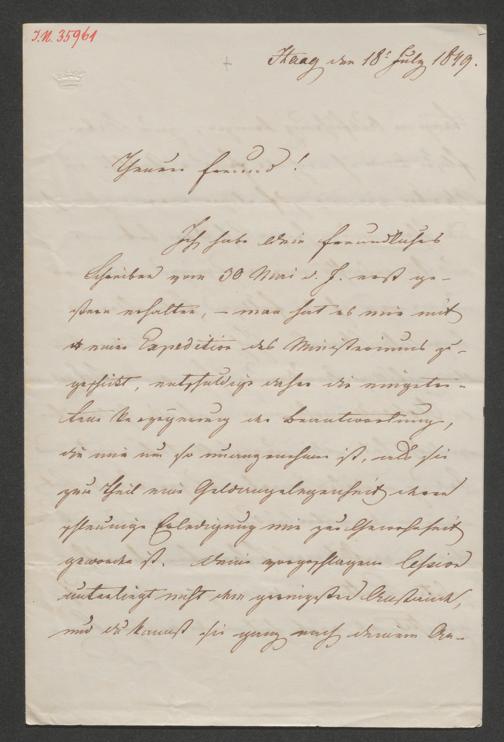 I.N. 35961
Haag den 18t July 1849.
Theurer Freund!
Ich habe Dein freundliches
Schreiben vom 30 Mai d. J. erst ge-
stern erhalten, – man hat es mir mit
einer Expedition des Ministeriums zu-
geschickt, entschuldige daher die eingetre-
tene Verzögerung der Beantwortung,
die mir um so unangenehmer ist, als sie
zum Theil eine Geldangelegenheit deren
schleunige Erledigung mir zur Gewohnheit
geworden ist. Deine vorgeschlagene Cession
unterliegt nicht dem geringsten Anstande,
und du kannst sie ganz nach deinem An-